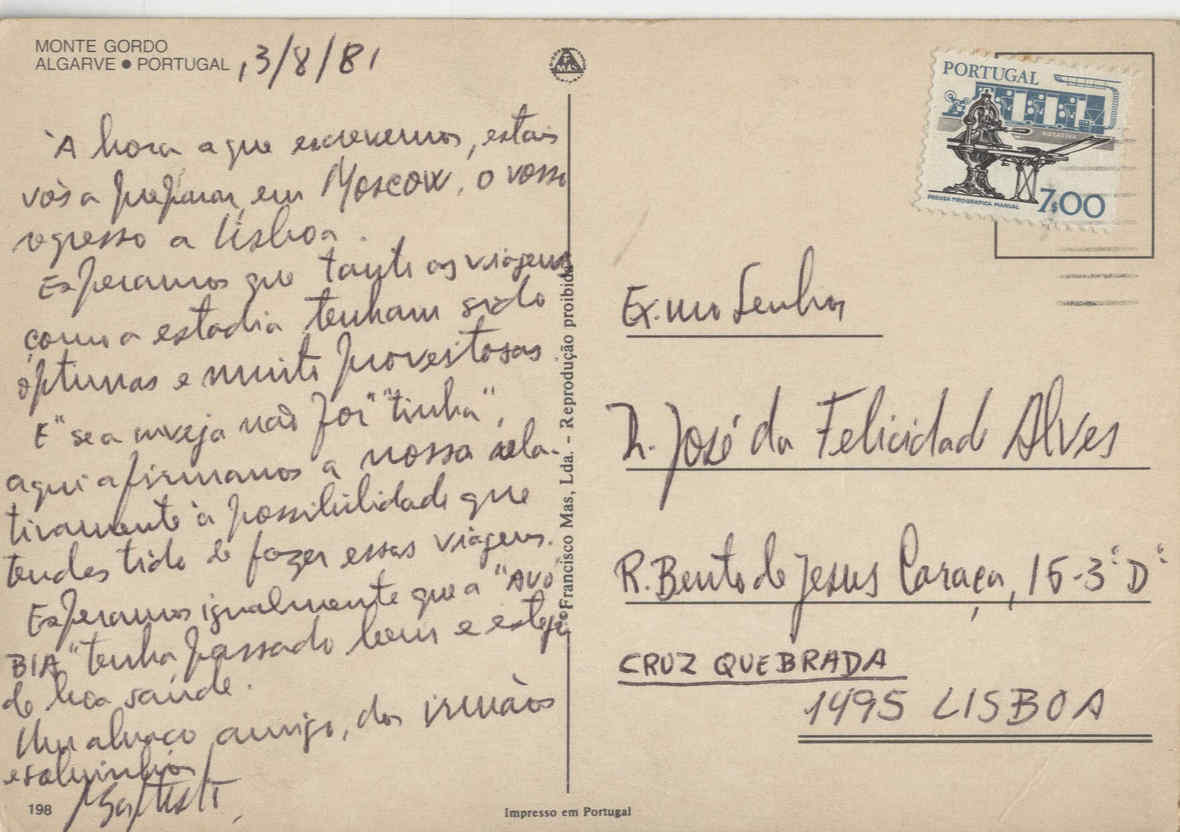 MONTE GORDO
ALGARVE ● PORTUGAL ,3/8/81
À hora a que escrevemos, estais
vós a preparar, em Moscow, o vosso
regresso a Lisboa.
Esperamos que tanto as viagens
como a estadia tenham sido
óptimas e muito proveitosas.
E "se a inveja não foi "tinha",
aqui afirmamos a nossa rela-
tivamente à possibilidade que
tendes tido de fazer essas viagens.
Esperamos igualmente que a "AVÓ
BIA" tenha passado bem e esteja
de boa saúde.
Um abraço amigo, dos irmãos
e sobrinhos
Baptista
198
Francisco Mas, Lda. - Reprodução proibida
Impresso em Portugal
MAS
PORTUGAL
ROTATIVA
PRENSA TIPOGRÁFICA MANUAL
7$00
Ex.mo Senhor
Dr. José da Felicidad Alves
R. Bento de Jesus Caraça, 15-3º D º
CRUZ QUEBRADA
1495 LISBOA